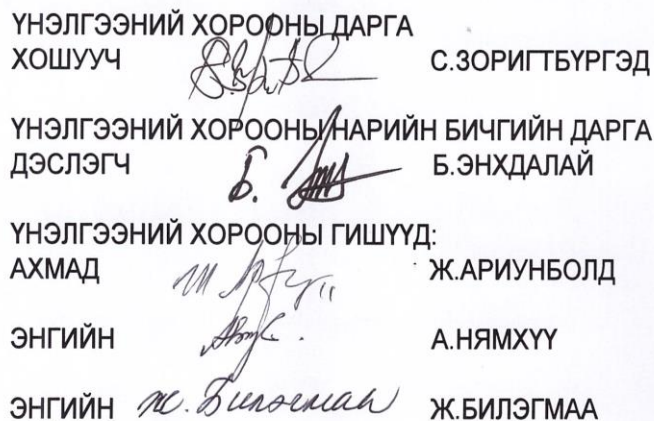 ҮНЭЛГЭЭНИЙ ХОРООНЫ ДАРГА
ХОШУУЧ С.ЗОРИГТБҮРГЭД
ҮНЭЛГЭЭНИЙ ХОРООНЫ НАРИЙН БИЧГИЙН ДАРГА
ДЭСЛЭГЧ Б. Б.ЭНХДАЛАЙ
ҮНЭЛГЭЭНИЙ ХОРООНЫ ГИШҮҮД:
АХМАД Ж.АРИУНБОЛД
ЭНГИЙН А.НЯМХҮҮ
ЭНГИЙН Ж. Билэгмаа Ж.БИЛЭГМАА